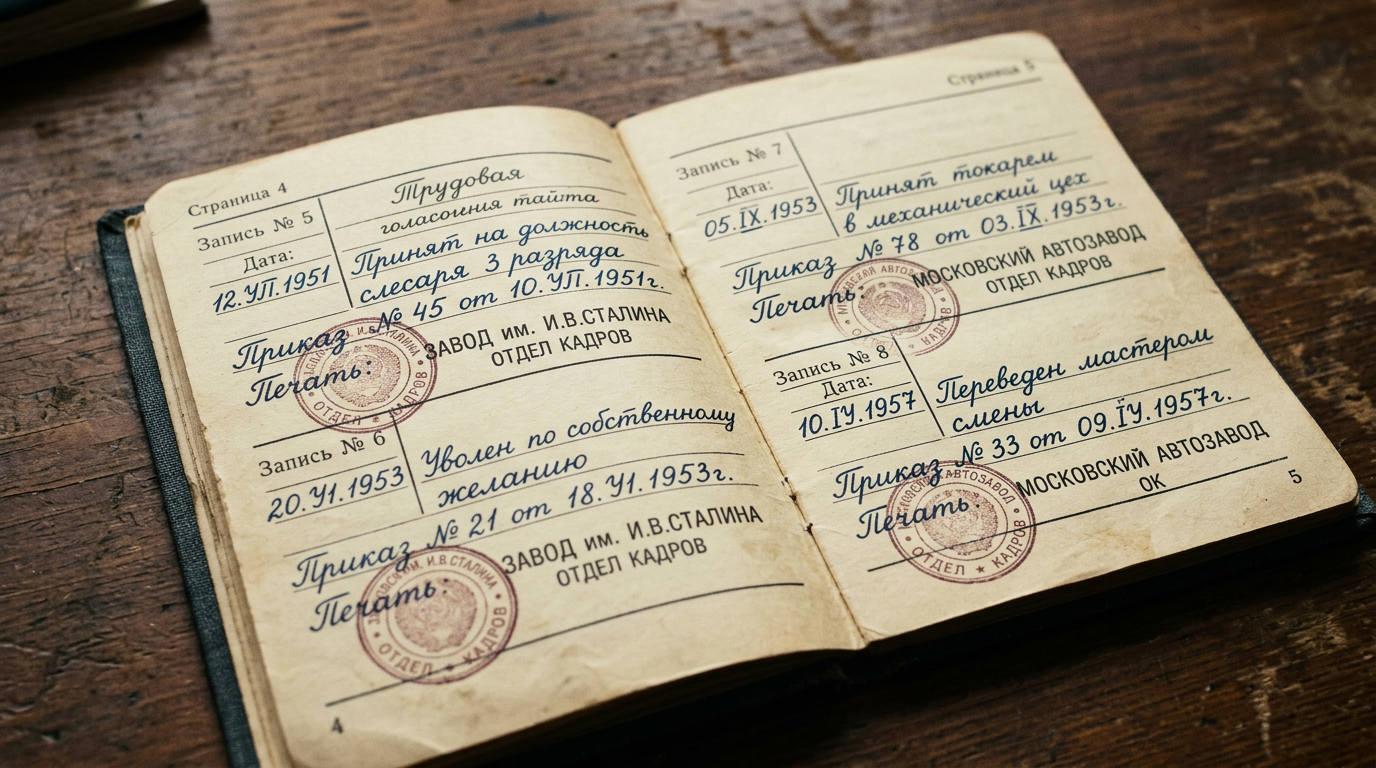 Страница 4
Запись № 5
Дата:
12.УП.1951
Трудовая
голасоиния таита
Принят на должность
слесаря 3 разряда
Приказ № 45 от 10.УП.1951г.
Печать:
ЗАВОД им. И.В.СТАЛИНА
ОТДЕЛ КАДРОВ
И.В.СТАЛИНА
ОТДЕЛ ★ КАДРОВ
Запись № 6
20.У1.1953
Уволен по собственному
желанию
Приказ № 21 от 18.У1.1953г.
Печать:
ЗАВОД им. И.В.СТАЛИНА
ОТДЕЛ КАДРОВ
И.В.СТАЛИНА
ОТДЕЛ ★ КАДРОВ
4
Страница 5
Запись № 7
Дата:
05.IX.1953
Принят токарем
в механический цех
Приказ № 78 от 03.IX.1953г.
Печать:
МОСКОВСКИЙ АВТОЗАВОД
ОТДЕЛ КАДРОВ
Запись № 8
Дата:
10.IУ.1957
Переведен мастером
смены
Приказ № 33 от 09.IУ.1957г.
Печать.
МОСКОВСКИЙ АВТОЗАВОД
ОК
АВТОЗАВОД
ОТДЕЛ ★ КАДРОВ
5